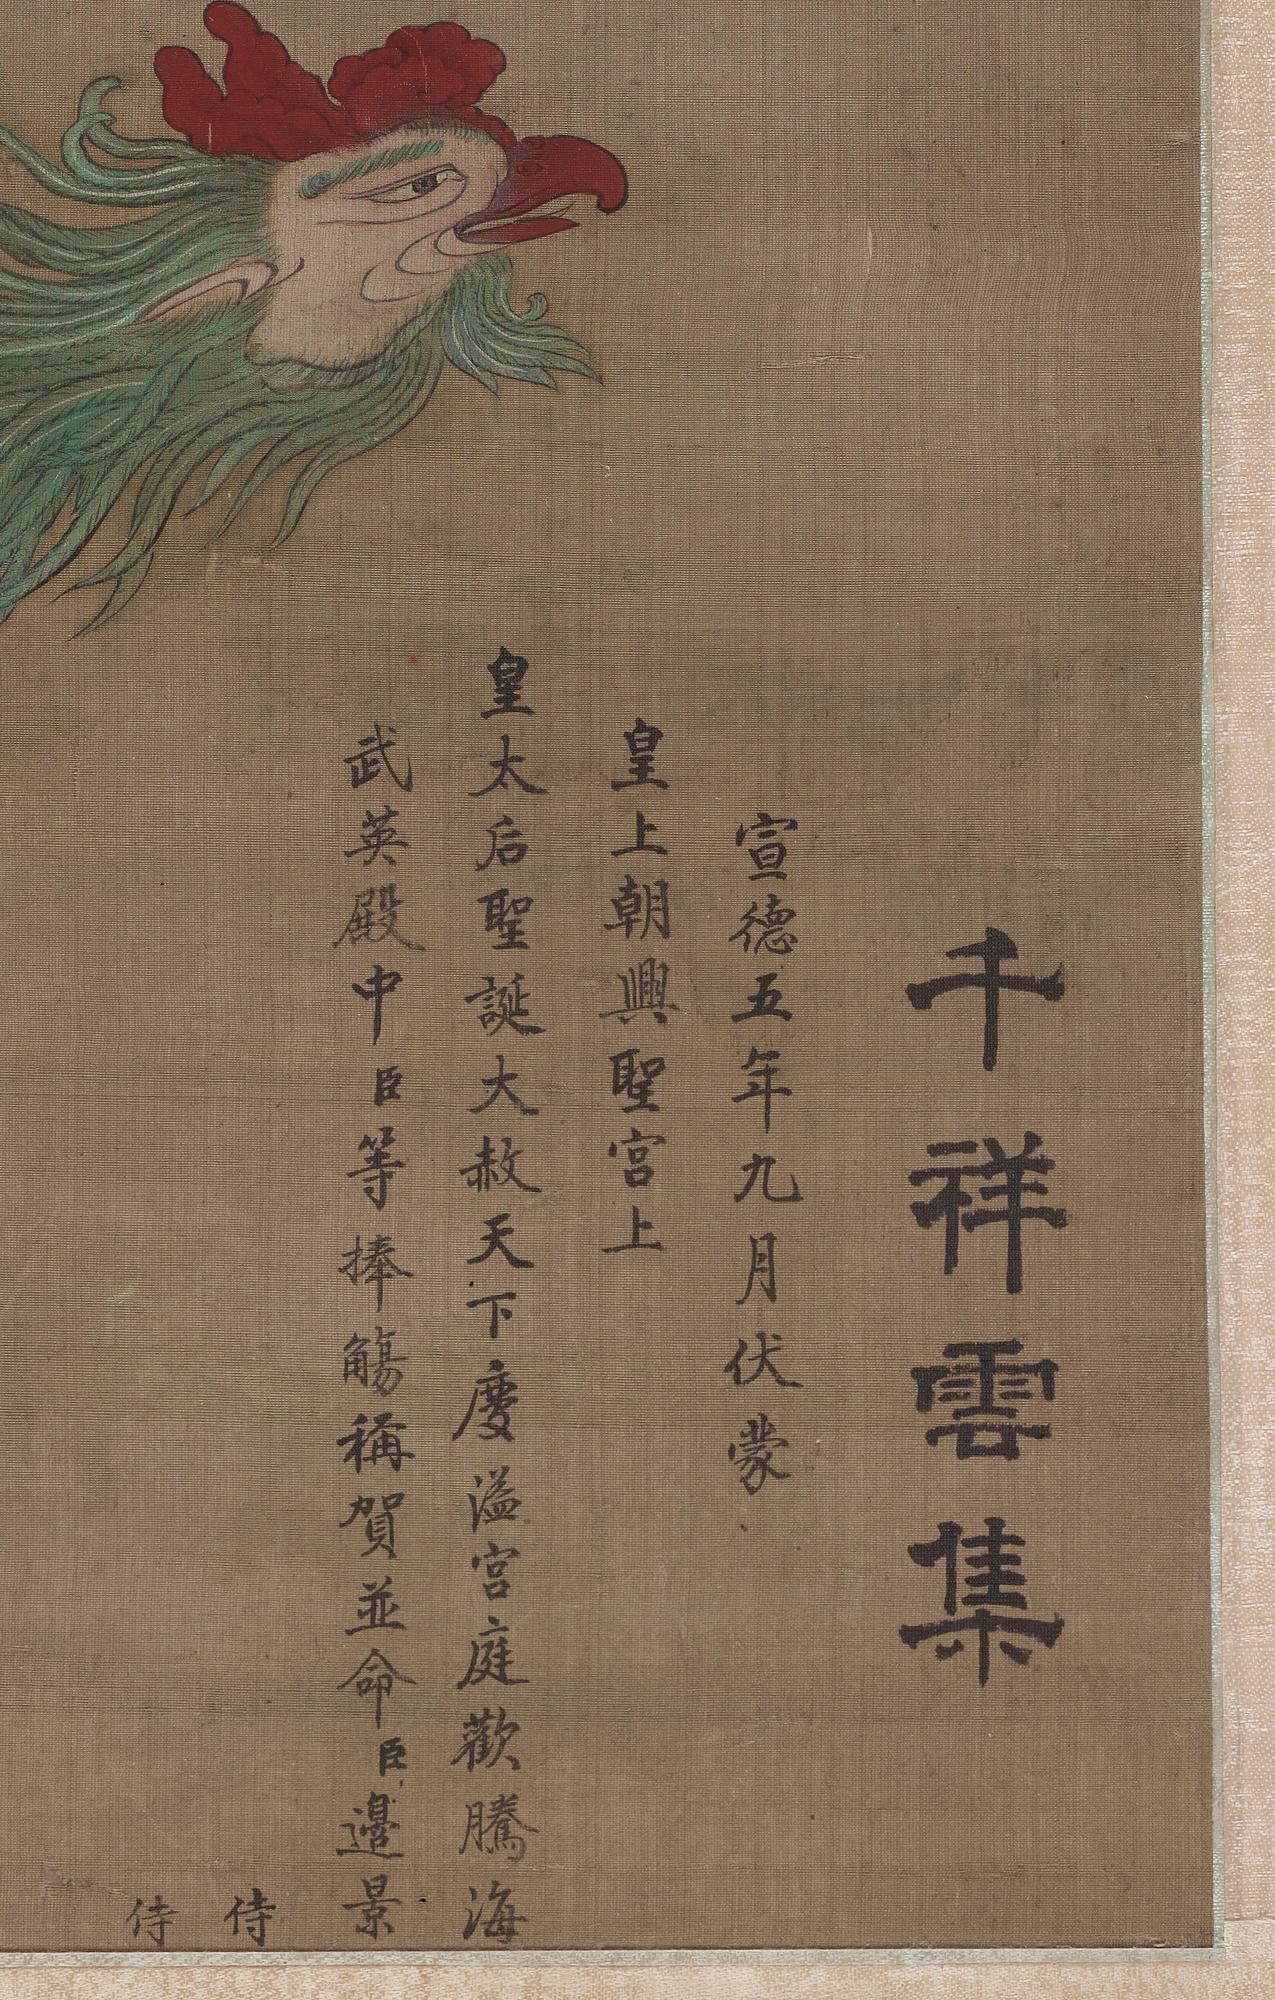 千祥雲集
宣德五年九月伏蒙
皇上朝興聖宮上
皇太后聖誕大赦天下慶溢宮庭歡騰海
武英殿中臣等捧觴稱賀並命臣邊景
侍
侍